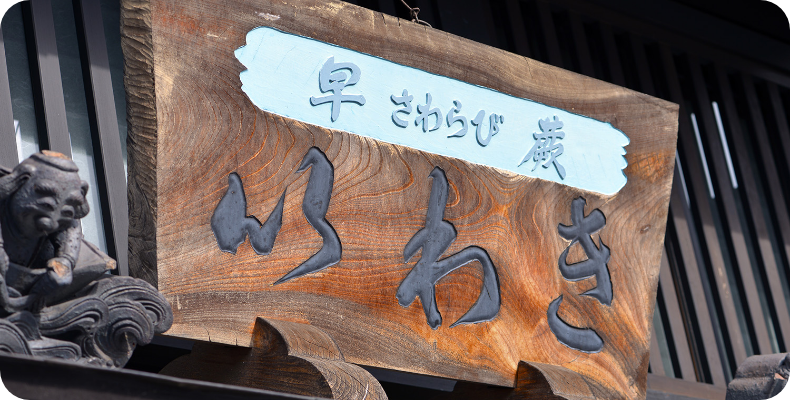 早 さわらび 蕨
いわき